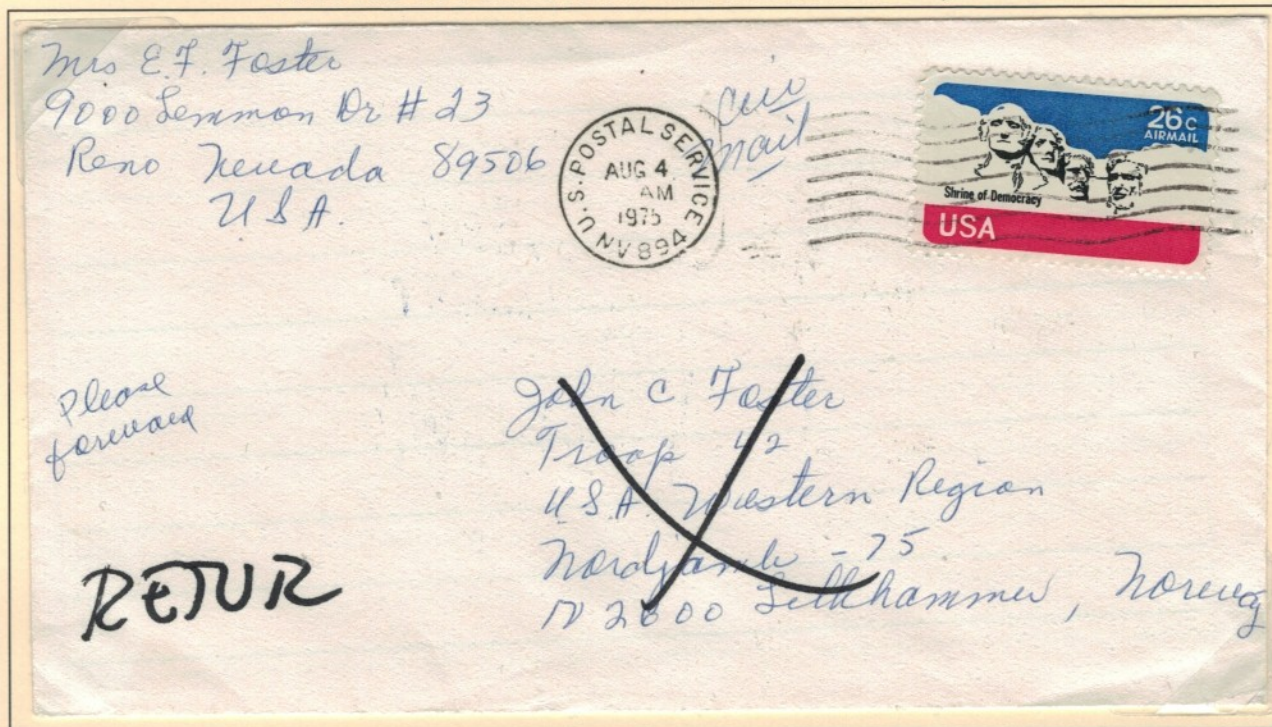 Mrs E.F. Foster
9000 Lemmon Dr # 23
Reno Nevada 89506
U S A.
air
mail
U.S. POSTAL SERVICE
AUG 4
AM
1975
NV 894
26c
AIRMAIL
Shrine of Democracy
USA
Please
foreward
John C Foster
Troop 42
U.S.A. Western Region
Nordjamb - 75
N 2600 Lillihammer, Norway
RETUR